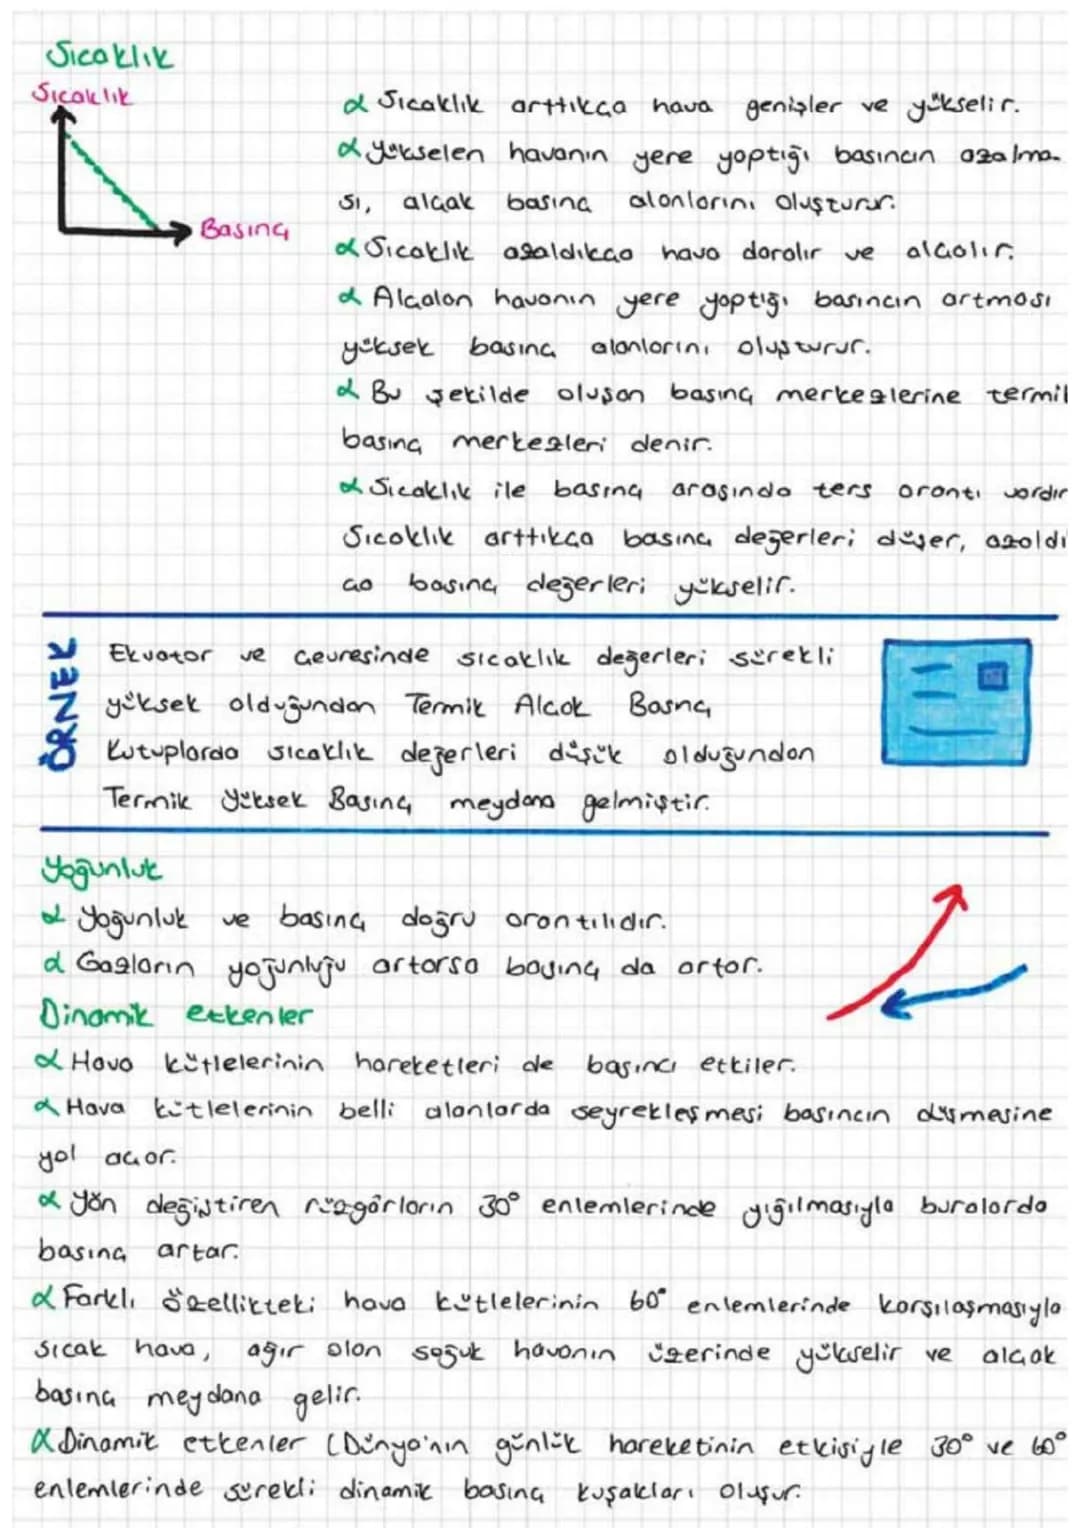 Sıcaklık
Sıcaklık
Basınç
α Sıcaklık arttıkça hava genişler ve yükselir.
α Yükselen havanın yere yaptığı basıncın azalma-
sı, alçak basınç alanlarını oluşturur.
α Sıcaklık azaldıkça hava daralır ve alçalır.
α Alçalan havanın yere yaptığı basıncın artması
yüksek basınç alanlarını oluşturur.
α Bu şekilde oluşan basınç merkezlerine termik
basınç merkezleri denir.
α Sıcaklık ile basınç arasında ters orantı vardır
Sıcaklık arttıkça basınç değerleri düşer, azaldı
ça basınç değerleri yükselir.
ÖRNEK
Ekvator ve çevresinde sıcaklık değerleri sürekli
yüksek olduğundan Termik Alçak Basınç
Kutuplarda sıcaklık değerleri düşük olduğundan
Termik Yüksek Basınç meydana gelmiştir.
Yoğunluk
α Yoğunluk ve basınç doğru orantılıdır.
α Gazların yoğunluğu artarsa basınç da artar.
Dinamik etkenler
α Hava kütlelerinin hareketleri de basıncı etkiler.
α Hava kütlelerinin belli alanlarda seyrekleşmesi basıncın düşmesine
yol açar.
α Yön değiştiren rüzgârların 30° enlemlerinde yığılmasıyla buralarda
basınç artar.
α Farklı özellikteki hava kütlelerinin 60° enlemlerinde karşılaşmasıyla
sıcak hava, ağır olan soğuk havanın üzerinde yükselir ve alçak
basınç meydana gelir.
α Dinamik etkenler (Dünya'nın günlük hareketinin etkisiyle 30° ve 60°
enlemlerinde sürekli dinamik basınç kuşakları oluşur.